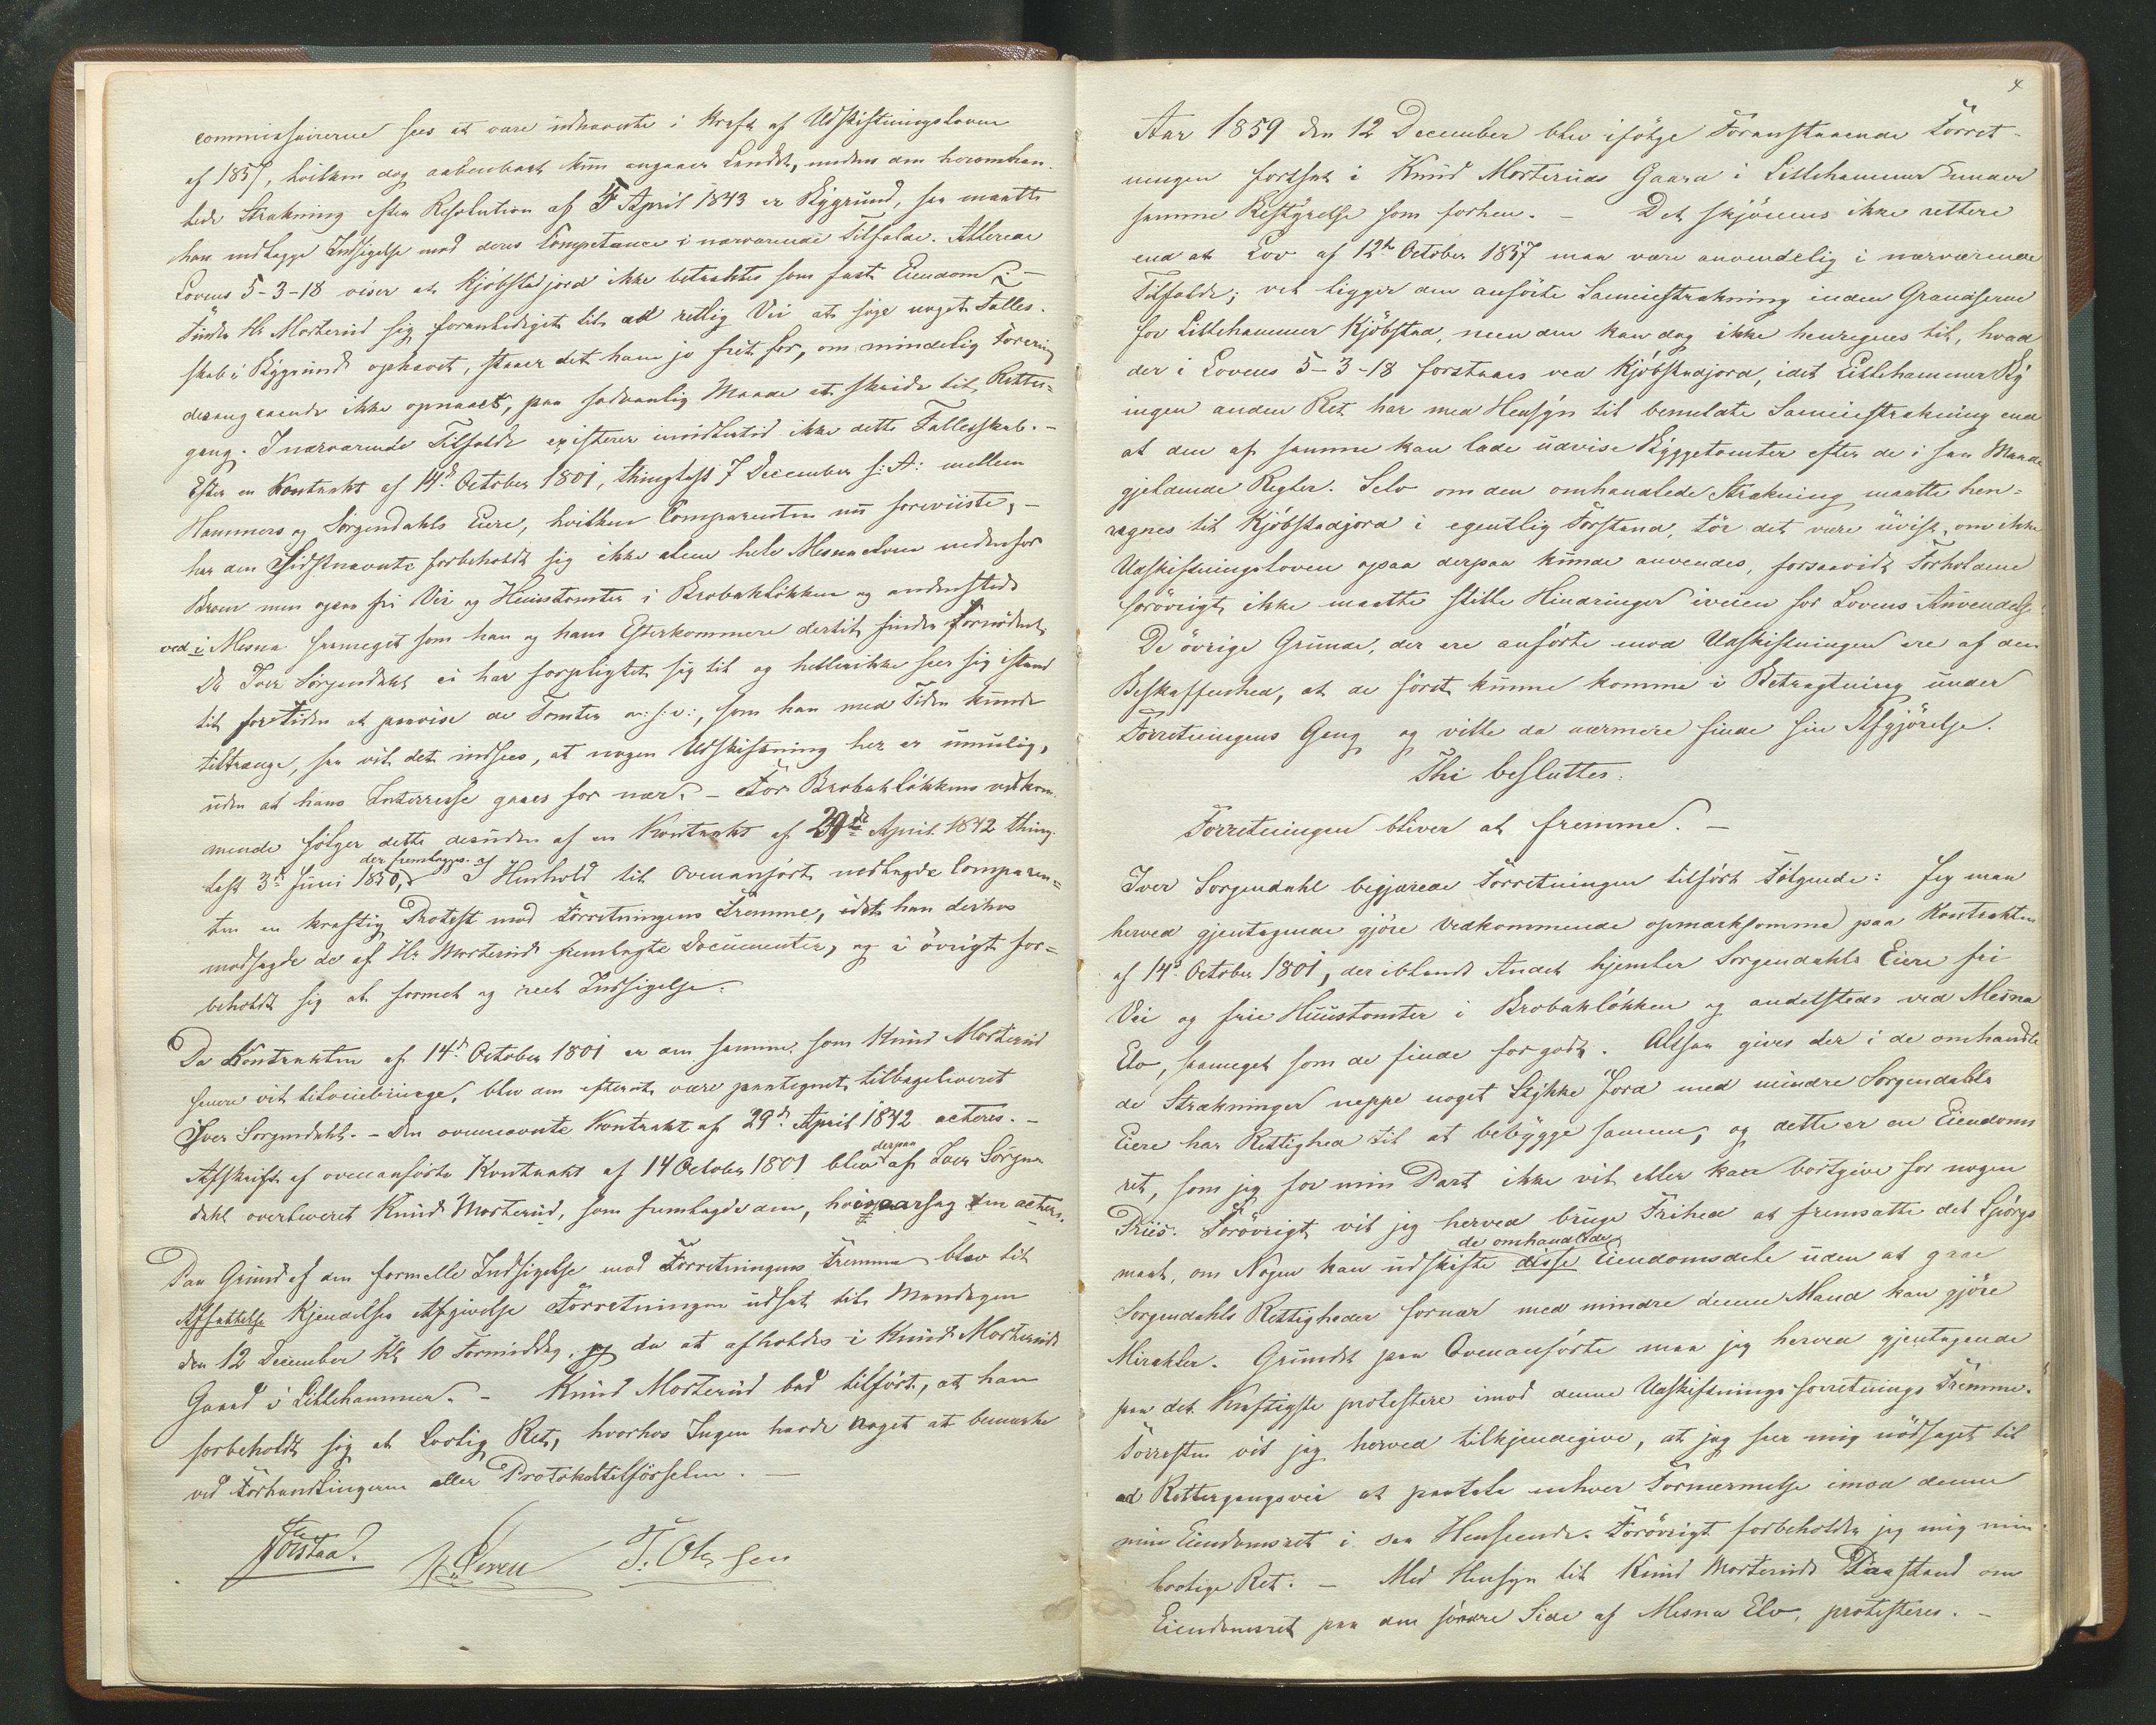 commissairerne sees at være udnævnte i Kraft af Udskiftningsloven
af 1857, hvilken dog aabenbart kun angaaer Landet, medens den heromhan-
lede Strækning efter Resolution af 4 April 1843 er Bygrund, saa maatte
han nedlægge Indsigelse mod deres Competance i nærværende Tilfælde. Allerede
Lovens 5-3-18 viser at Kjøbstadjord ikke betragtes som fast Eiendom. -
Finder Hr Mosterud sig foranlediget til ad retlig Vei at søge noget Fælles-
skab i Bygrund ophævet, staaer det ham jo frit for, om mindelig Forening
desangaaende ikke opnaaes, paa sædvanlig Maade at skride til Retter-
gang. I nærværende Tilfælde existerer imidlertid ikke dette Fællesskab. -
Efter en Kontrakt af 14de October 1801, thinglæst 7 December s: A: mellem
Hammers og Sørgendahls Eiere, hvilken Comparenten nu foreviiste, -
har den Sidstnævnte forbeholdt sig ikke alene hele Mesna elven nedenfor
Broen men ogsaa fri Vei og Huustomter i Brobakløkken og andensteds
ved i Mesna saameget som han og hans Efterkommere dertil finder fornødent.
Da Iver Sørgendahl ei har forpligtet sig til og hellerikke seer sig istand
til for Tiden at paavise de Tomter o: s: v:, som han med Tiden kunde
tiltrænge, saa vil det indsees, at nogen Udskiftning her er umulig,
uden at hans Interresse gaaes for nær. - For Brobakløkkens vedkom-
mende følger dette desuden af en Kontrakt af 29de April 1842 thing-
læst 3de Juni 1850, der fremlægges. I Henhold til Ovenanført nedlagde Comparen-
ten en kraftig Protest mod Forretningens Fremme, idet han derhos
modsagde de af Hr Mosterud fremlagte Documenter, og i øvrigt for-
beholdt sig al formel og reel Indsigelse.
Da Kontrakten af 14de October 1801 er den samme som Knud Mosterud
senere vil tilveiebringe, blev den efterat være paategnet tilbageleveret
Iver Sørgendahl. - Den ovennævnte Kontrakt af 29de April 1842 acteres. -
Afskrift af ovenanførte Kontrakt af 14 October 1801 blev derpaa af Iver Sørgen
dahl overleveret Knud Mosterud, som fremlagde den, hvisaarsag den acteres.
Paa Grund af den formelle Indsigelse mod Forretningens Fremme blev til
Affattelse Kjendelses Afgivelse Forretningen udsat til Mandagen
den 12 December Kl 10 Formiddag, og da at afholdes i Knud Mosteruds
Gaard i Lillehammer. - Knud Mosterud bad tilført, at han
forbeholdt sig al Lovlig Ret, hvorhos Ingen havde noget at bemærke
ved Forhandlingerne eller Protokoltilførselen. -
T. Olsen
4
Aar 1859 den 12 December blev ifølge Foranstaaende Forret-
ningen fortsat i Knud Mosteruds Gaard i Lillehammer under
samme Bestyrelse som forhen. - Det skjønnes ikke rettere
end at Lov af 12te October 1857 maa være anvendelig i nærværende
Tilfælde; vel ligger den anførte Sameiestrækning inden Grændserne
for Lillehammer Kjøbstad, men den kan dog ikke henregnes til, hvad
der i Lovens 5-3-18 forstaaes ved Kjøbstadjord, idet Lillehammer By
ingen anden Ret har med Hensyn til bemeldte Sameiestrækning end
at den af samme kan lade udvise Byggetomter efter de i saa Maade
gjeldende Regler. Selv om den omhandlede Strækning maatte hen-
regnes til Kjøbstadjord i egentlig Forstand, tør det være uvist, om ikke
Udskiftningsloven ogsaa derpaa kunde anvendes, forsaavidt Forholdene
forøvrigt ikke maatte stille Hindringer iveien for Lovens Anvendelse.
De øvrige Grunde, der ere anførte mod Udskiftningen ere af den
Beskaffenhed, at de først kunne komme i Betragtning under
Forretningens Gang og ville da nærmere finde sin Afgjørelse.
Thi besluttes:
Forretningen bliver at fremme. -
Iver Sorgendahl begjærede Forretningen tilført Følgende: Jeg maa
herved gjentagende gjøre Vedkommende opmærksomme paa Kontrakten
af 14de October 1801, der iblandt Andet hjemler Sorgendahls Eiere fri
Vei og frie Huustomter i Brobakløkken og andetsteds ved Mesna
Elv, saameget som de finde for godt. Altsaa gives der i de omhandle
de Strækninger neppe noget Stykke Jord med mindre Sorgendahls
Eiere har Rettighed til at bebygge samme, og dette er en Eiendoms
ret, som jeg for min Part ikke vil eller kan bortgive for nogen
Priis. Forøvrigt vil jeg herved bruge Frihed at fremsætte det Spørgs
maal, om Nogen kan udskifte disse de omhandlede Eiendomsdele uden at gaae
Sorgendahls Rettigheder fornær med mindre denne Mand kan gjøre
Mirakler. Grundet paa Ovenanførte maa jeg herved gjentagende
paa det Kraftigste protestere imod denne Udskiftningsforretnings Fremme.
Forresten vil jeg herved tilkjendegive, at jeg seer mig nødsaget til
ad Rettergangsvei at paatale enhver Fornærmelse imod denne
min Eiendomsret i saa Henseende. Forøvrigt forbeholder jeg mig min
lovlige Ret. - Med Hensyn til Knud Mosteruds Paastand om
Eiendomsret paa den søndre Side af Mesna Elv, protesteres. -